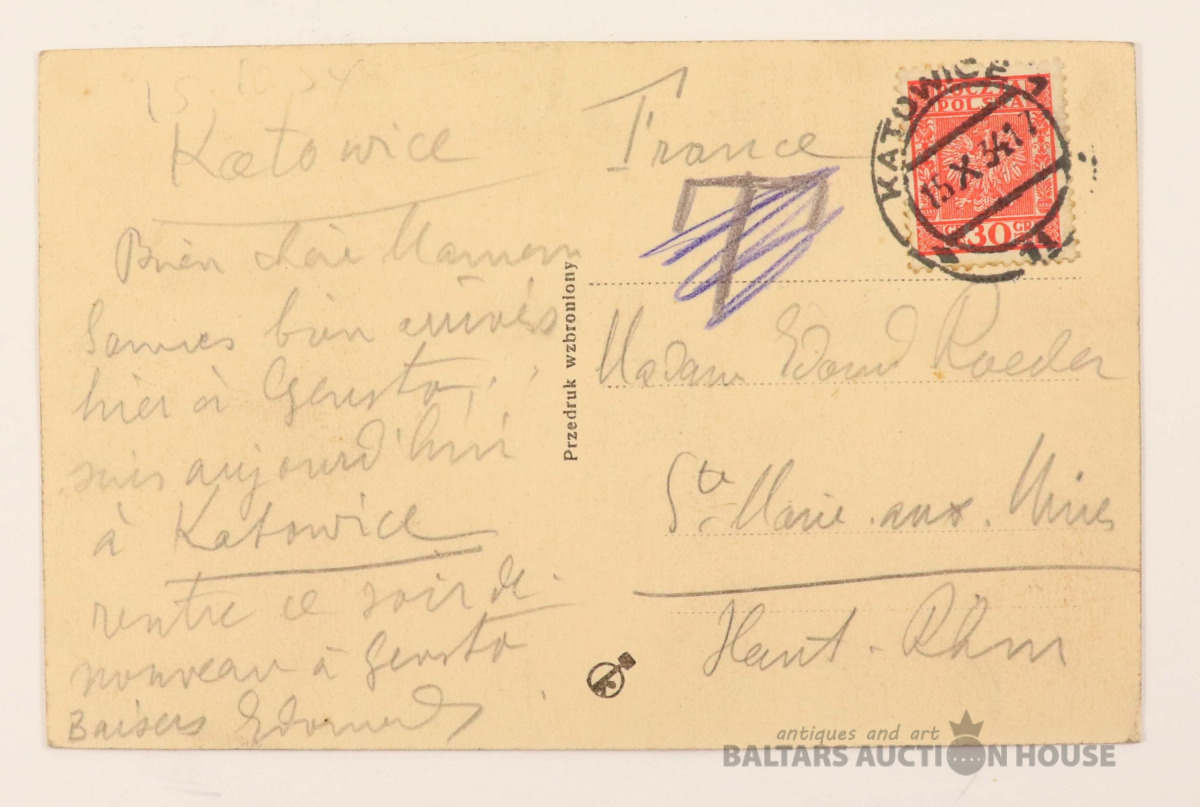 15.10.34
Katowice
Bien chère Maman
Sommes bien arrivés
hier à
suis aujourd'hui
à Katowice
rentre ce soir de
nouveau à
Baisers Edouard
Przedruk wzbroniony
France
T
Madame Edouard Roeder
Ste Marie-aux-Mines
Haut-Rhin
POCZTA
POLSKA
30
GR
KATOWICE 1
15.X.34.17
antiques and art
BALTARS AUCTION HOUSE